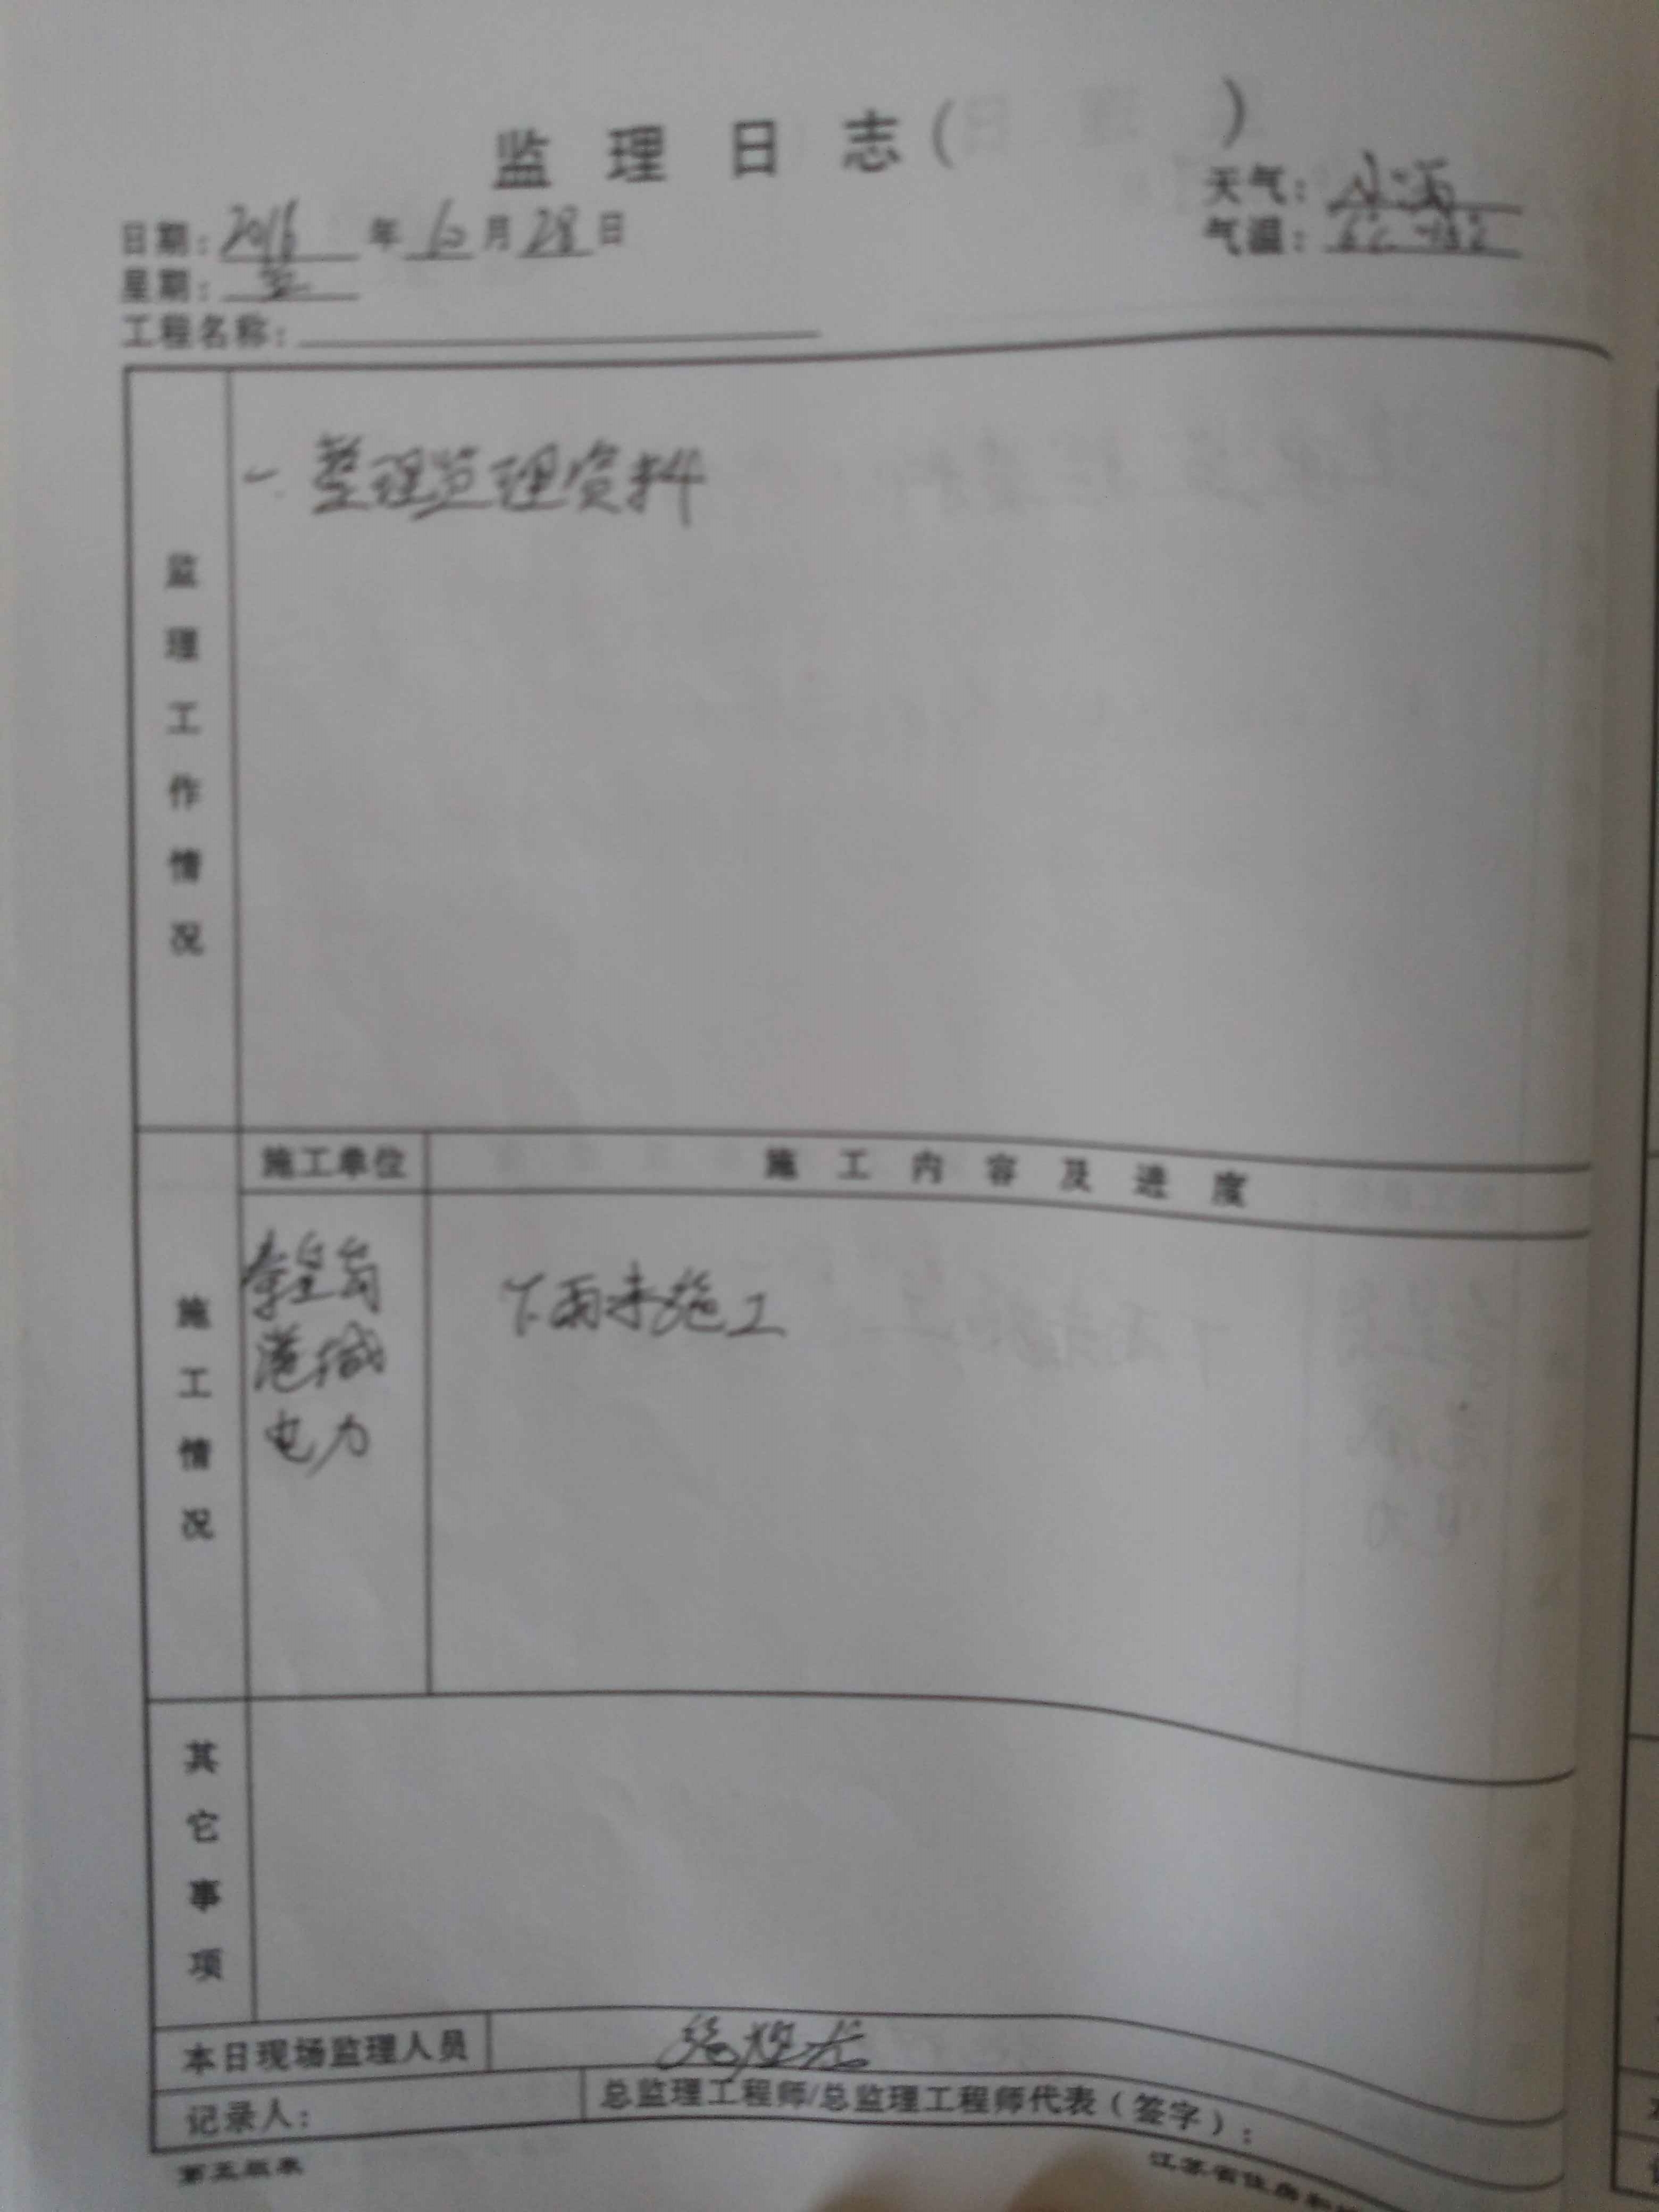 监理日志( )
天气：小雨
日期：2016年10月28日
气温：
星期：五
工程名称：
监理工作情况
一. 整理监理资料
施工单位
施工内容及进度
施工情况
秦皇岛
港城
电力
下雨未施工
其它事项
本日现场监理人员
记录人：
总监理工程师/总监理工程师代表（签字）：
第五版表
江苏省住房和